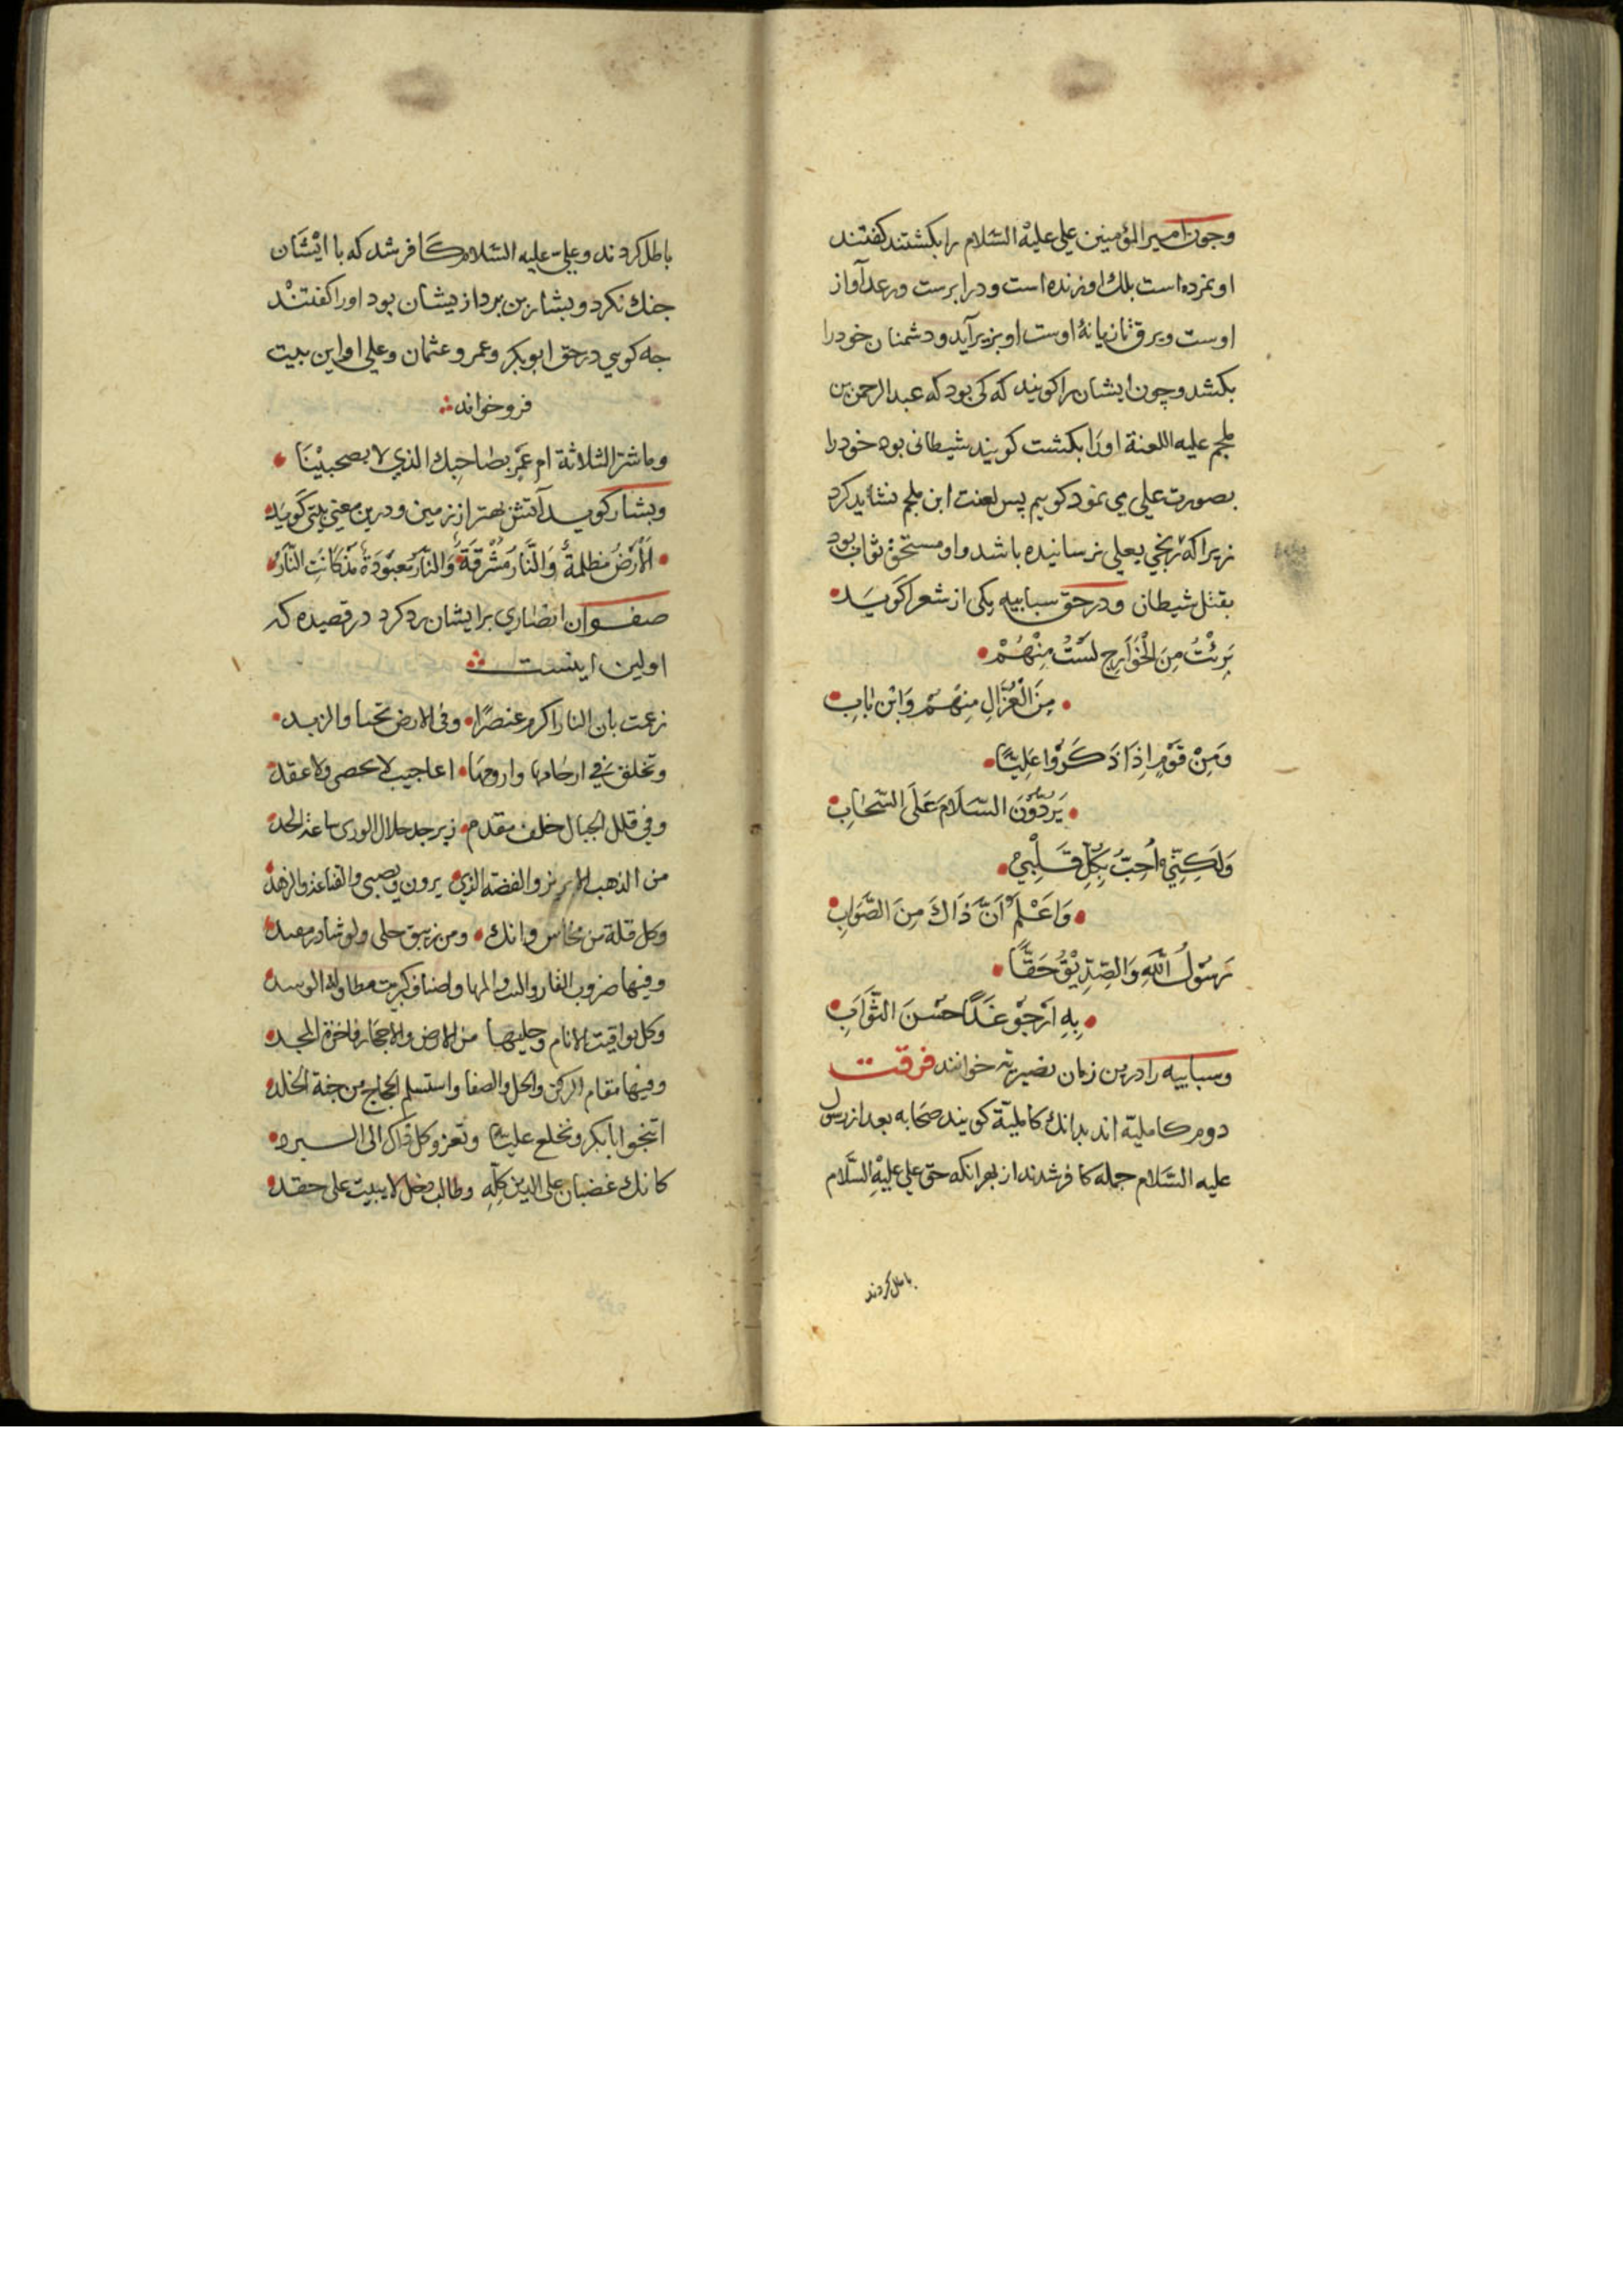 وجون امير المؤمنين علي عليه السلام را بكشتند كفتند
او نمرده است بلك او زنده است و در ابرست و رعد آواز
اوست و برق تازيانهٔ اوست او بزير آيد و دشمنان خود را
بكشد و چون ايشان را كويند كه كي بود كه عبد الرحمن بن
ملجم عليه اللعنة او را بكشت كويند شيطاني بود خود را
بصورت علي مي نمود كوييم پس لعنت ابن ملجم نشايد كرد
زيرا كه رنجي بعلي نرسانيده باشد و او مستحق ثواب بود
بقتل شيطان و در حق سبابيه يكي از شعرا كويد
بَرِئْتُ مِنَ الْخَوَارِجِ لَسْتُ مِنْهُمْ
مِنَ الْغُزَّالِ مِنْهُمْ وَابْنِ بَابِ
وَمِنْ قَوْمٍ اِذَا ذَكَرُوْا عَلِيًّا
يَرُدُّوْنَ السَّلَامَ عَلَى السَّحَابِ
وَلَكِنِّي اُحِبُّ بِكُلِّ قَلْبِي
وَاَعْلَمُ اَنَّ ذَاكَ مِنَ الصَّوَابِ
رَسُوْلَ اللّٰهِ وَالصِّدِّيْقَ حَقًّا
بِهِ اَرْجُوْ غَدًا حُسْنَ الثَّوَابِ
و سبابيه را درين زمان نصيريه خوانند فرقت
دوم كامليه اند بدانك كامليّة كويند صحابه بعد از رسول
عليه السّلام جمله كافر شدند از بهر انكه حق علي عليه السّلام
باطل كردند
باطل كردند و علي عليه السلام كافر شد كه با ايشان
جنك نكرد و بشار بن برد از يشان بود او را كفتند
جه كوي در حق ابو بكر و عمر و عثمان و علي او اين بيت
فرو خواند
وما شر الثلاثة ام عمرٍ بصاحبك الذي لا يصحبينا
و بشار كويد آتش بهتر از زمين و درين معني بيتي كويد
اَلْاَرْضُ مُظْلِمَةٌ وَالنَّارُ مُشْرِقَةٌ وَالنَّارُ مَعْبُوْدَةٌ مُذْ كَانَتِ النَّارُ
صفوان انصاري بر ايشان رد كرد در قصيده كه
اولين اينست
زعمت بان النار اكرم عنصرًا وفي الارض تحيا والزند
وتخلق في ارحامها وارومها اعاجيب لا تحصى ولا عقد
وفي قلل الجبال خلف مقدم زبرجد حلال الورى ساعة الحد
من الذهب الابريز والفضة الذي يرون ويصبي والقناعة والزهد
وكل قلة من نحاس وانك ومن زيبق حلي و نوشادر معبد
وفيها ضروب القار والمها واصناف كبريت مطاولة الوسد
وكل يواقيت الانام وحليها من الارض والاحجار فاخرة المجد
وفيها مقام الركن والحل والصفا واستسلم الحجاج من جنة الخلد
اتنجوا ابا بكر وتخلع عليّا وتعز وكل ذاك الى السبرد
كانك غضبان على الدين كلّه وطالب دخل لا يبيت على حقد